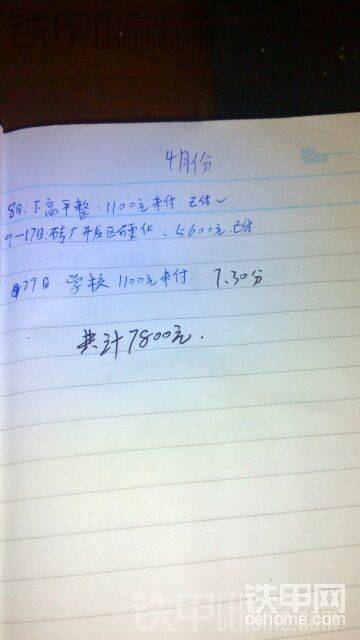 铁甲网
cehome.com
4月份
NO.
DATE
8日:下高平整:1100元未付.已付✓
9-17日.砖厂开发区硬化:5600元.已付
27日 学校 1100元未付 7.30分
共计7800元.
铁甲网
cehome.com